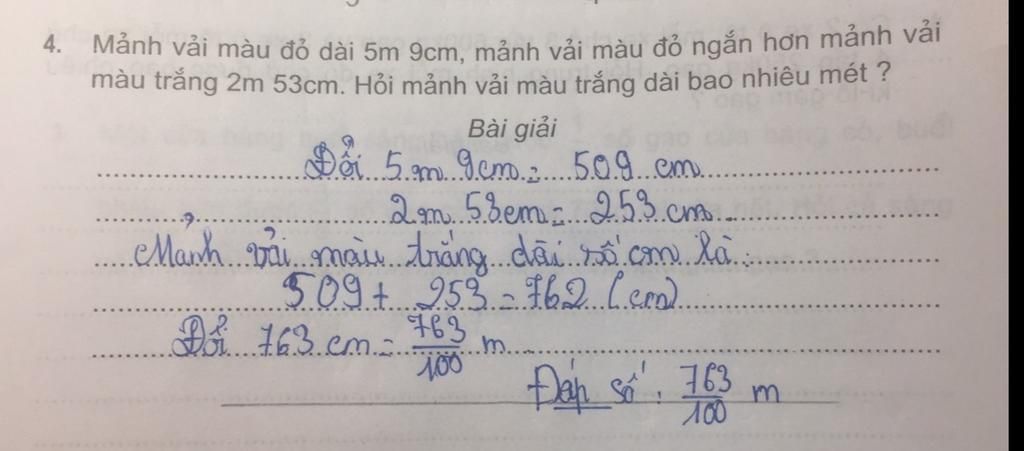 4. Mảnh vải màu đỏ dài 5m 9cm, mảnh vải màu đỏ ngắn hơn mảnh vải
màu trắng 2m 53cm. Hỏi mảnh vải màu trắng dài bao nhiêu mét ?
Bài giải
Đổi 5m 9cm = 509 cm
2m 53cm = 253 cm
Mảnh vải màu trắng dài số cm là :
509 + 253 = 762 (cm)
Đổi 763 cm = 763/100 m
Đáp số : 763/100 m